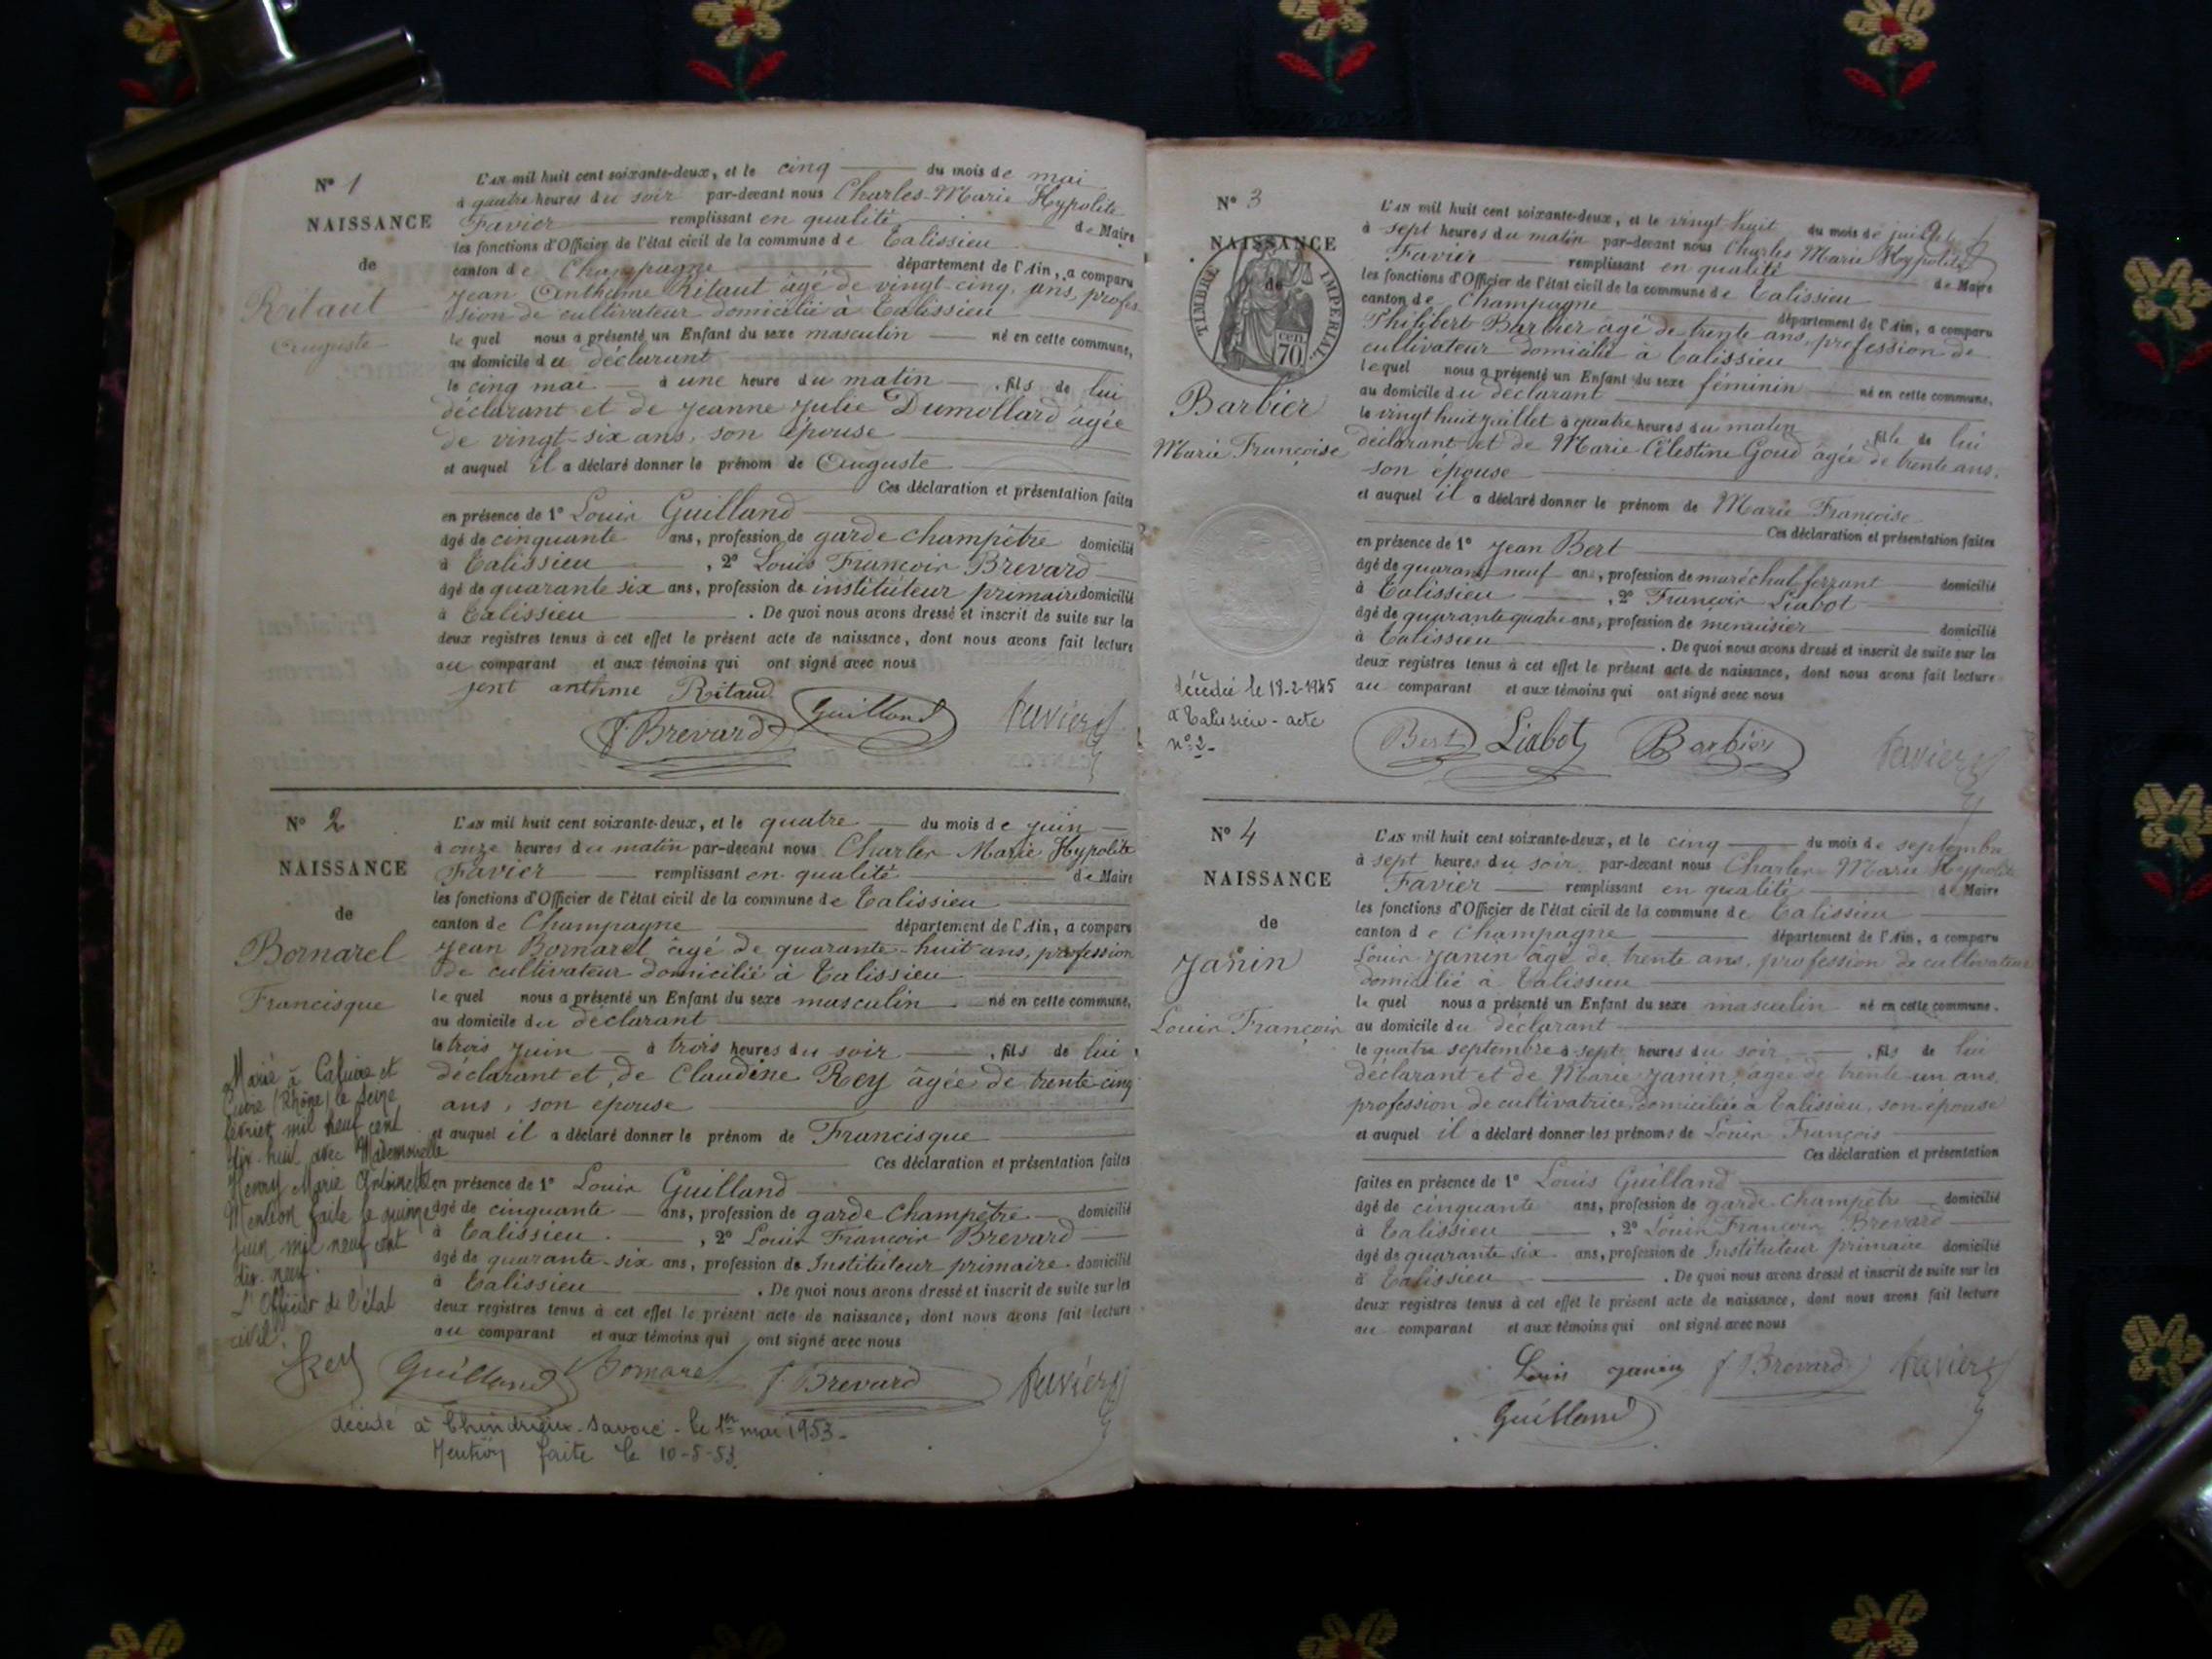 N° 1
NAISSANCE
de
Ritaut
Auguste
L'AN mil huit cent soixante-deux, et le cinq du mois de mai
à quatre heures du soir par-devant nous Charles-Marie Hypolite
Favier remplissant en qualité de Maire
les fonctions d'Officier de l'état civil de la commune de Talissieu
canton de Champagne département de l'Ain, a comparu
Jean Anthème Ritaut âgé de vingt-cinq ans, profes-
sion de cultivateur domicilié à Talissieu
lequel nous a présenté un Enfant du sexe masculin né en cette commune,
au domicile du déclarant
le cinq mai à une heure du matin, fils de lui
déclarant et de Jeanne Julie Dumollard âgée
de vingt-six ans, son épouse
et auquel il a déclaré donner le prénom de Auguste
Ces déclaration et présentation faites
en présence de 1° Louis Guilland
âgé de cinquante ans, profession de garde champêtre domicilié
à Talissieu, 2° Louis François Brevard
âgé de quarante six ans, profession de instituteur primaire domicilié
à Talissieu. De quoi nous avons dressé et inscrit de suite sur les
deux registres tenus à cet effet le présent acte de naissance, dont nous avons fait lecture
au comparant et aux témoins qui ont signé avec nous
jent anthme Ritaud
f Brevard Guilland Favier
N° 2
NAISSANCE
de
Bornarel
Francisque
L'AN mil huit cent soixante-deux, et le quatre du mois de juin
à onze heures du matin par-devant nous Charles Marie Hypolite
Favier remplissant en qualité de Maire
les fonctions d'Officier de l'état civil de la commune de Talissieu
canton de Champagne département de l'Ain, a comparu
Jean Bornarel âgé de quarante-huit ans, profession
de cultivateur domicilié à Talissieu
lequel nous a présenté un Enfant du sexe masculin né en cette commune,
au domicile du déclarant
le trois juin à trois heures du soir, fils de lui
déclarant et de Claudine Rey âgée de trente-cinq
ans, son épouse
et auquel il a déclaré donner le prénom de Francisque
Ces déclaration et présentation faites
en présence de 1° Louis Guilland
âgé de cinquante ans, profession de garde champêtre domicilié
à Talissieu, 2° Louis François Brevard
âgé de quarante-six ans, profession de Instituteur primaire domicilié
à Talissieu. De quoi nous avons dressé et inscrit de suite sur les
deux registres tenus à cet effet le présent acte de naissance, dont nous avons fait lecture
au comparant et aux témoins qui ont signé avec nous
Marié à Caluire et
Cuire (Rhône) le seize
février mil neuf cent
dix-huit avec Mademoiselle
Henry Marie Antoinette
Mention faite le quinze
juin mil neuf cent
dix-neuf.
L'Officier de l'état
civil.
Rey
Guilland Bornarel f Brevard Favier
décédé à Chindrieux-Savoie-le 1er mai 1953-
Mention faite le 10-5-53.
N° 3
NAISSANCE
de
TIMBRE IMPÉRIAL
70 CEN.
Barbier
Marie Françoise
L'AN mil huit cent soixante-deux, et le vingt huit du mois de juillet
à sept heures du matin par-devant nous Charles Marie Hypolite
Favier remplissant en qualité de Maire
les fonctions d'Officier de l'état civil de la commune de Talissieu
canton de Champagne département de l'Ain, a comparu
Philibert Barbier âgé de trente ans, profession de
cultivateur domicilié à Talissieu
lequel nous a présenté un Enfant du sexe féminin né en cette commune,
au domicile du déclarant
le vingt huit juillet à quatre heures du matin, fille de lui
déclarant et de Marie Célestine Goud âgée de trente ans,
son épouse
et auquel il a déclaré donner le prénom de Marie Françoise
Ces déclaration et présentation faites
en présence de 1° Jean Bert
âgé de quarante neuf ans, profession de maréchal ferrant domicilié
à Talissieu, 2° François Liabot
âgé de quarante quatre ans, profession de menuisier domicilié
à Talissieu. De quoi nous avons dressé et inscrit de suite sur les
deux registres tenus à cet effet le présent acte de naissance, dont nous avons fait lecture
au comparant et aux témoins qui ont signé avec nous
décédée le 18-2-1945
à Talissieu - acte
n° 2-
Bert Liabot Barbier Favier
N° 4
NAISSANCE
de
Janin
Louis François
L'AN mil huit cent soixante-deux, et le cinq du mois de septembre
à sept heures du soir par-devant nous Charles Marie Hypolite
Favier remplissant en qualité de Maire
les fonctions d'Officier de l'état civil de la commune de Talissieu
canton de Champagne département de l'Ain, a comparu
Louis Janin âgé de trente ans, profession de cultivateur
domicilié à Talissieu
lequel nous a présenté un Enfant du sexe masculin né en cette commune,
au domicile du déclarant
le quatre septembre à sept heures du soir, fils de lui
déclarant et de Marie Janin, âgée de trente-un ans,
profession de cultivatrice, domiciliée à Talissieu, son épouse
et auquel il a déclaré donner les prénoms de Louis François
Ces déclaration et présentation
faites en présence de 1° Louis Guilland
âgé de cinquante ans, profession de garde champêtre domicilié
à Talissieu, 2° Louis François Brevard
âgé de quarante six ans, profession de Instituteur primaire domicilié
à Talissieu. De quoi nous avons dressé et inscrit de suite sur les
deux registres tenus à cet effet le présent acte de naissance, dont nous avons fait lecture
au comparant et aux témoins qui ont signé avec nous
Louis Janin f Brevard Favier
Guilland